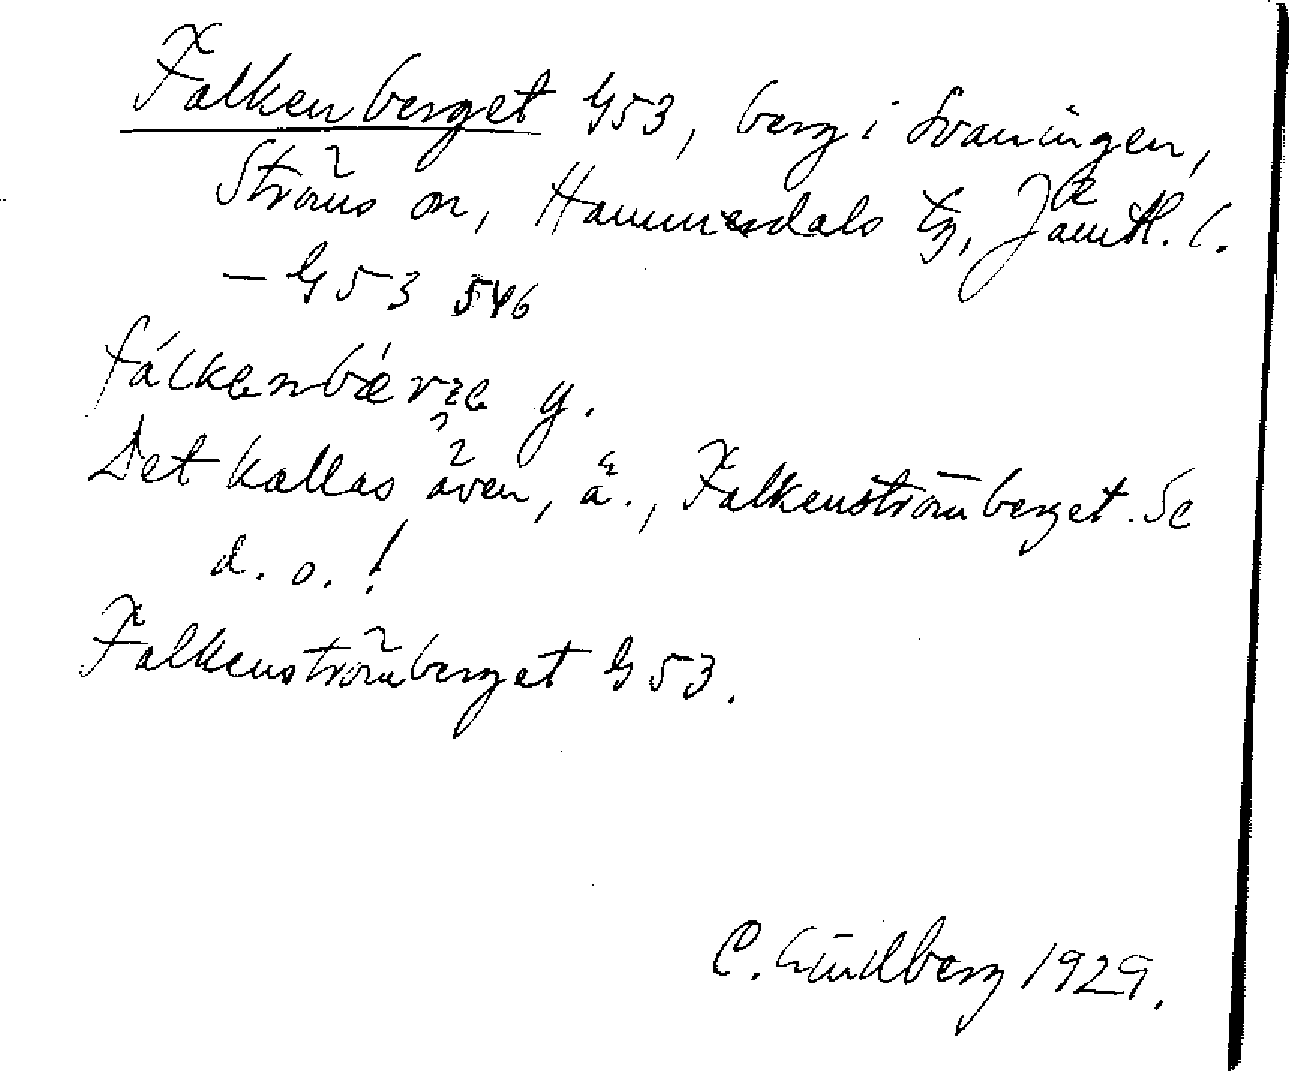 Falkenberget G53, berg i Svaningen,
Ströms sn, Hammerdals tg, Jämtl. l.
— G53 546
fálkenbǽrʒe g.
Det kallas även, ä., Falkenströmberget. Se
d. o.!
Falkenströmberget G53.
C. Lindberg 1929.